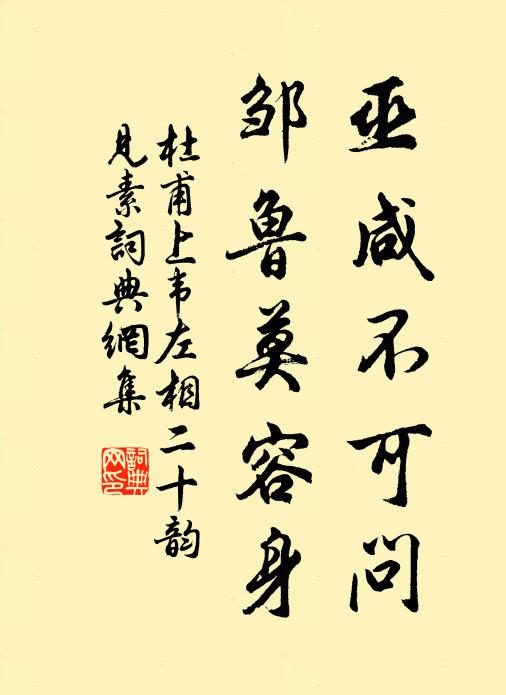 巫咸不可问
邹鲁莫容身
杜甫上韦左相二十韵
见素詞典網集
詞典
网印